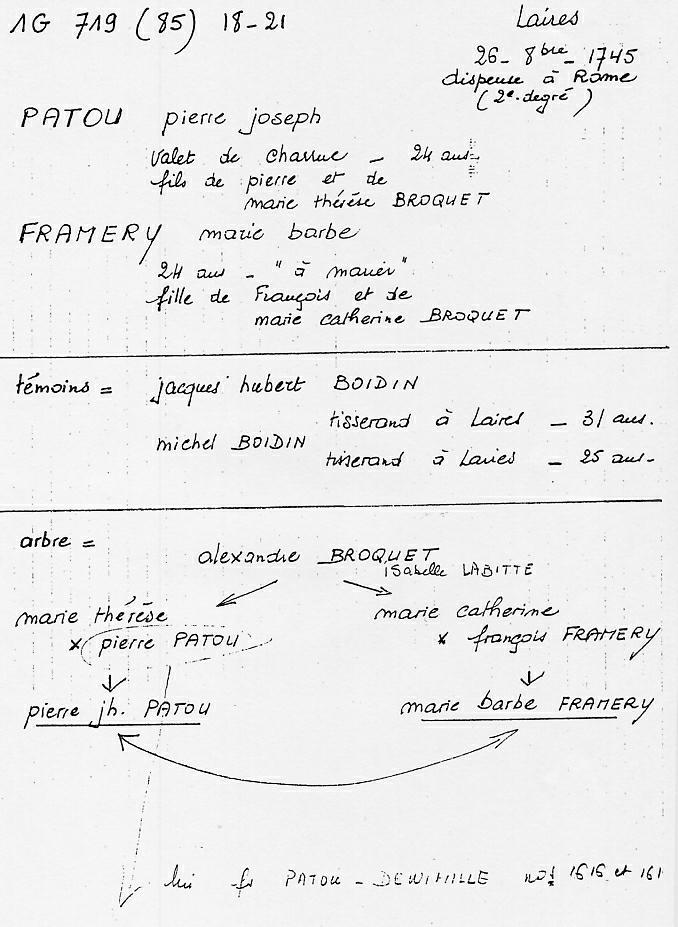 1G 719 (85) 18-21
Laires
26_ 8bre_ 1745
dispense à Rome
(2e.degré)
PATOU pierre joseph
valet de charrue _ 24 ans_
fils de pierre et de
marie thérèse BROQUET
FRAMERY marie barbe
24 ans _ "à marier"
fille de François et de
marie catherine BROQUET
témoins = jacques hubert BOIDIN
tisserand à Laires _ 31 ans.
michel BOIDIN
tisserand à Laires _ 25 ans_
arbre =
alexandre BROQUET
isabelle LABITTE
marie thérèse
x pierre PATOU
marie catherine
x françois FRAMERY
pierre jh. PATOU
marie barbe FRAMERY
PATOU _ DEWIMILLE nos 1615 et 161